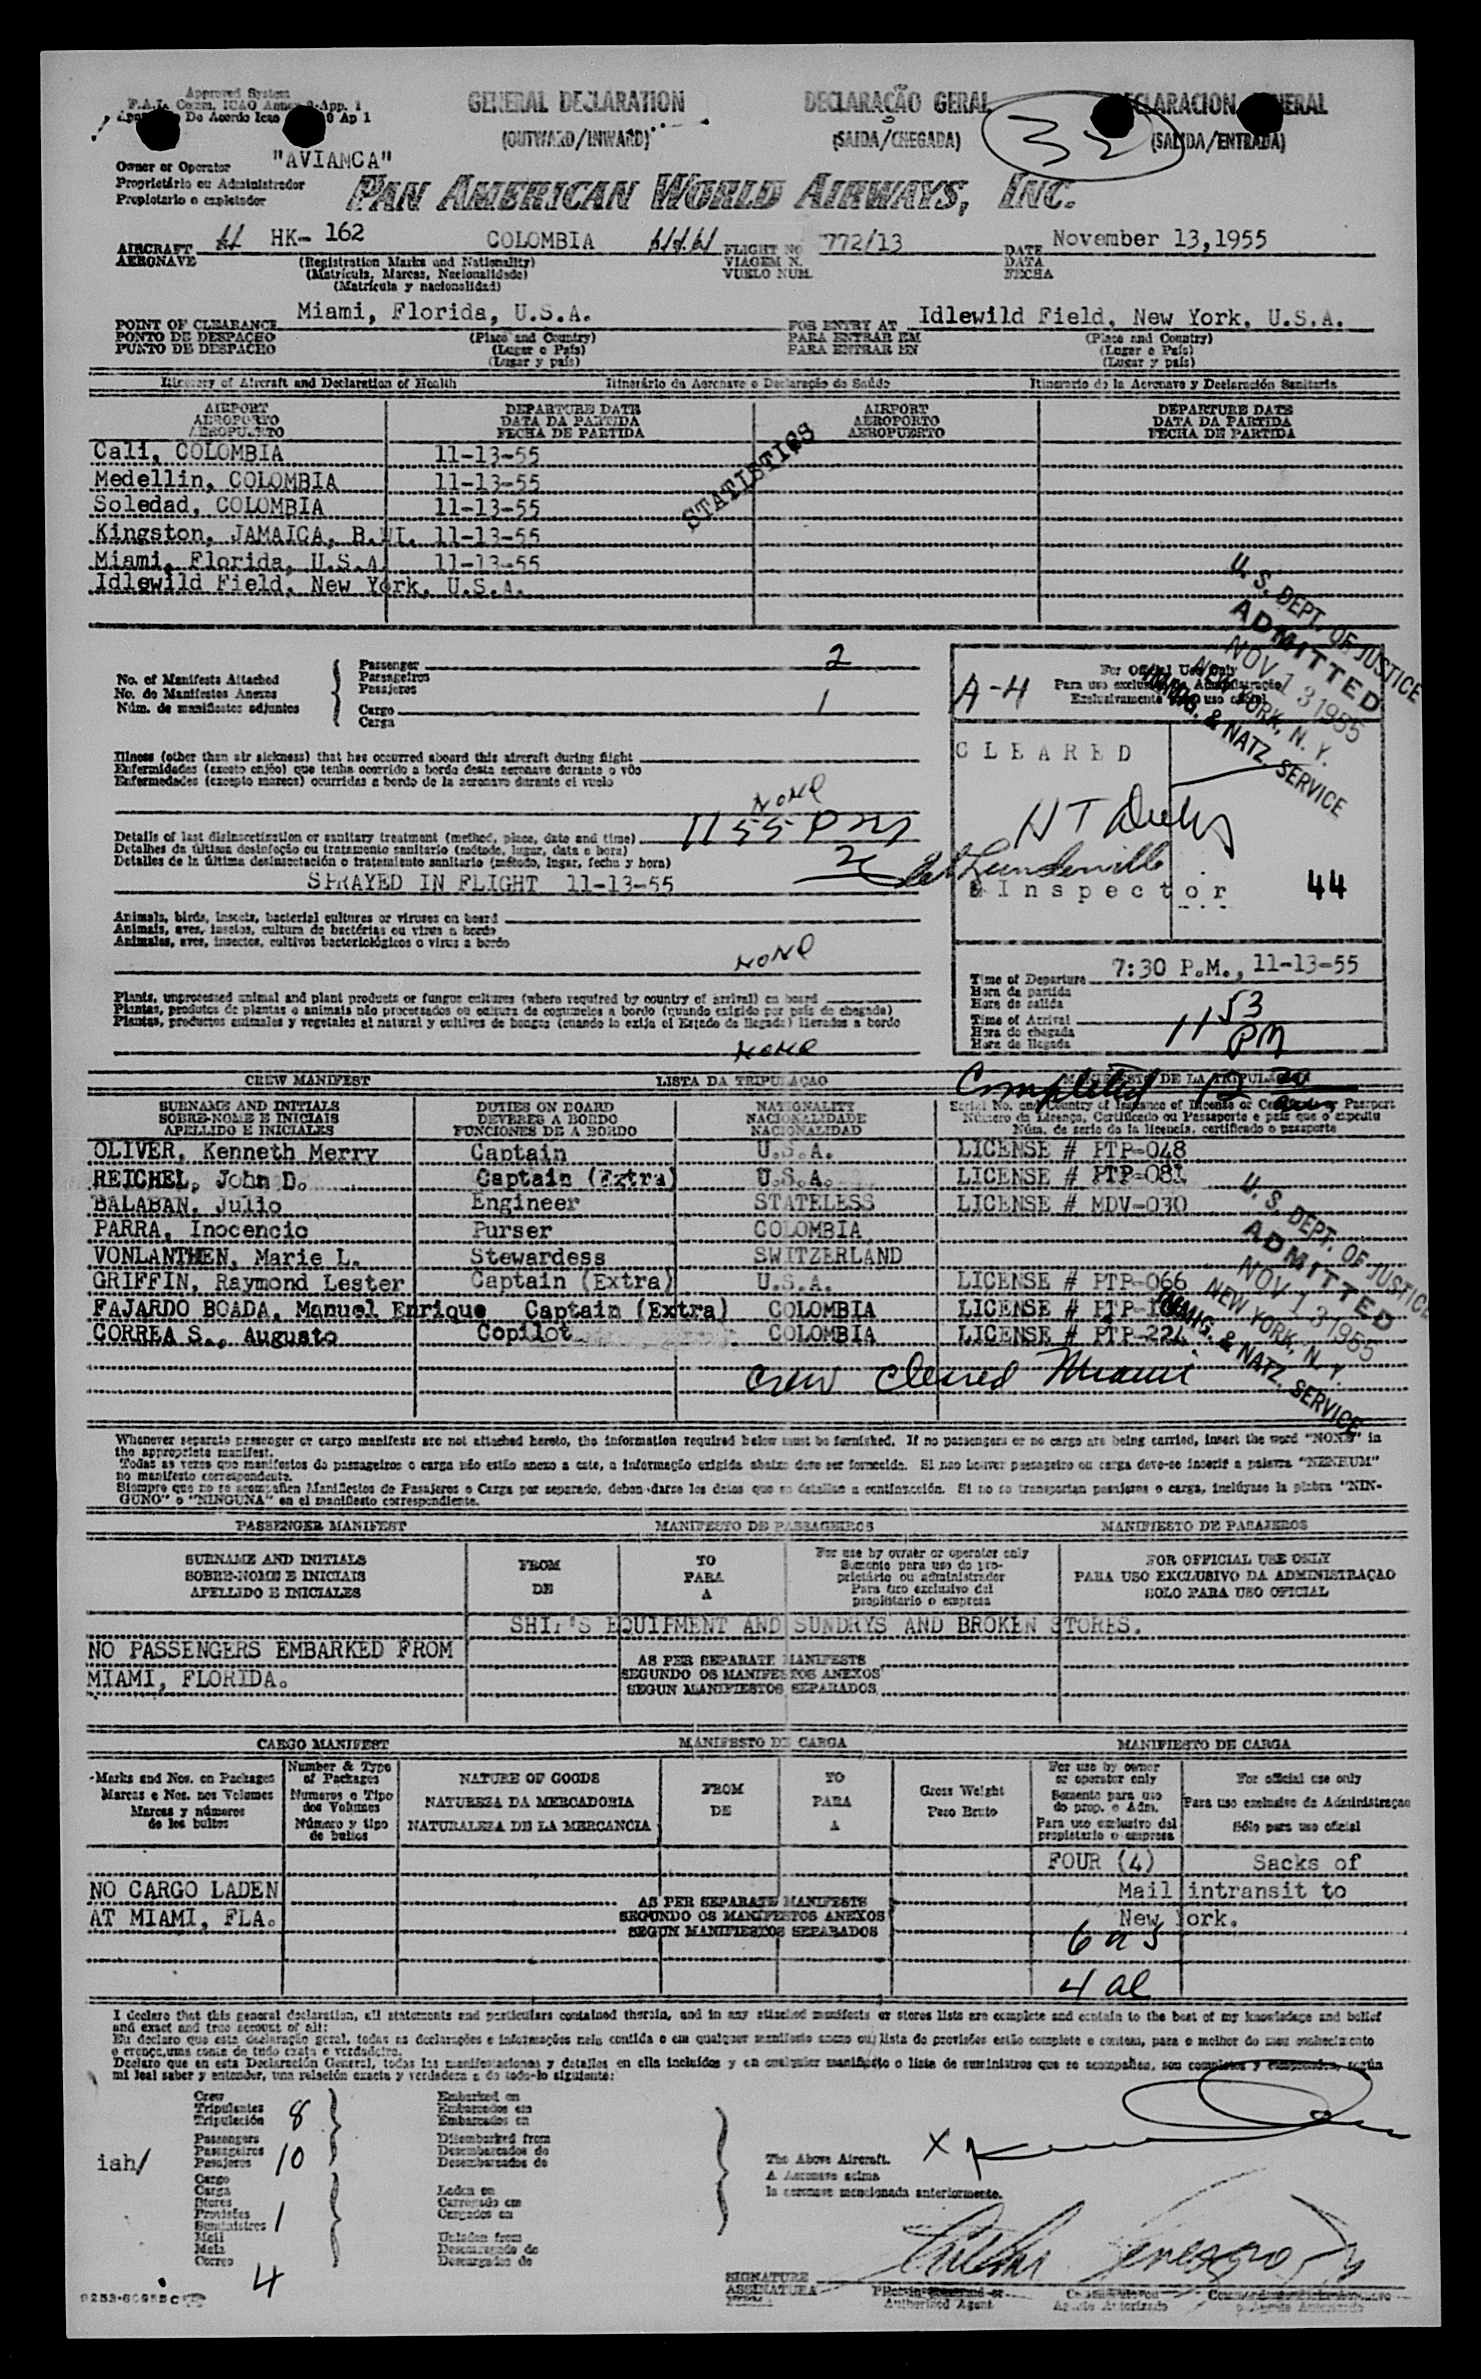 Approved System
F.A.L. Comm. ICAO Annex 9-App. 1
De Acordo Icao 9 Ap 1
GENERAL DECLARATION
(OUTWARD/INWARD)
DECLARAÇÃO GERAL
(SAIDA/CHEGADA)
DECLARACION GENERAL
(SALIDA/ENTRADA)
32
Owner or Operator "AVIANCA"
Proprietário ou Administrador
Propietario o explotador
PAN AMERICAN WORLD AIRWAYS, INC.
AIRCRAFT HK- 162 COLOMBIA FLIGHT NO 772/13 DATE November 13,1955
AERONAVE (Registration Marks and Nationality) VIAGEM N. DATA
(Matrícula, Marcas, Nacionalidade) VUELO NUM. FECHA
(Matrícula y nacionalidad)
POINT OF CLEARANCE Miami, Florida, U.S.A. FOR ENTRY AT Idlewild Field, New York, U.S.A.
PONTO DE DESPACHO (Place and Country) PARA ENTRAR EM (Place and Country)
PUNTO DE DESPACHO (Lugar e País) PARA ENTRAR EN (Lugar e País)
(Lugar y país) (Lugar y país)
Itinerary of Aircraft and Declaration of Health Itinerário da Aeronave e Declaração de Saúde Itinerario de la Aeronave y Declaración Sanitaria
AIRPORT DEPARTURE DATE AIRPORT DEPARTURE DATE
AEROPORTO DATA DA PARTIDA AEROPORTO DATA DA PARTIDA
AEROPUERTO FECHA DE PARTIDA AEROPUERTO FECHA DE PARTIDA
Cali, COLOMBIA 11-13-55
Medellin, COLOMBIA 11-13-55
Soledad, COLOMBIA 11-13-55
Kingston, JAMAICA, B.WI. 11-13-55
Miami, Florida, U.S.A. 11-13-55
Idlewild Field, New York, U.S.A.
STATISTICS
U. S. DEPT. OF JUSTICE
ADMITTED
NOV 13 1955
NEW YORK, N. Y.
IMMIG. & NATZ. SERVICE
No. of Manifests Attached
No. de Manifestos Anexos
Núm. de manifiestos adjuntos
Passenger 2
Passageiros
Pasajeros
Cargo 1
Carga
For Official Use Only
Para uso exclusivo da Administração
Exclusivamente para uso oficial
A-H
CLEARED
Inspector
44
Illness (other than air sickness) that has occurred aboard this aircraft during flight
Enfermidades (exceto enjôo) que tenha ocorrido a bordo desta aeronave durante o vôo
Enfermedades (excepto mareos) ocurridas a bordo de la aeronave durante el vuelo
NONE
Details of last disinsectization or sanitary treatment (method, place, date and time) 11 55 PM
Detalhes da última desinfeção ou tratamento sanitario (método, lugar, data e hora)
Detalles de la última desinsectación o tratamiento sanitario (método, lugar, fecha y hora)
SPRAYED IN FLIGHT 11-13-55
Animals, birds, insects, bacterial cultures or viruses on board
Animais, aves, insetos, cultura de bactérias ou virus a bordo
Animales, aves, insectos, cultivos bacteriológicos o virus a bordo
NONE
Plants, unprocessed animal and plant products or fungus cultures (where required by country of arrival) on board
Plantas, produtos de plantas e animais não processados ou cultura de cogumelos a bordo (quando exigido por país de chegada)
Plantas, productos animales y vegetales al natural y cultivos de hongos (cuando lo exija el Estado de llegada) llevados a bordo
NONE
Time of Departure 7:30 P.M., 11-13-55
Hora da partida
Hora de salida
Time of Arrival 11 53 PM
Hora de chegada
Hora de llegada
Completed 12
CREW MANIFEST LISTA DA TRIPULAÇÃO MANIFIESTO DE LA TRIPULACION
SURNAME AND INITIALS DUTIES ON BOARD NATIONALITY Serial No. and Country of Issuance of License or Certificate or Passport
SOBRE-NOME E INICIAIS DEVERES A BORDO NACIONALIDADE Número da Licença, Certificado ou Passaporte e país que o expediu
APELLIDO E INICIALES FUNCIONES DE A BORDO NACIONALIDAD Núm. de serie de la licencia, certificado o pasaporte
OLIVER, Kenneth Merry Captain U.S.A. LICENSE # PTP-048
REICHEL, John D. Captain (Extra) U.S.A. LICENSE # PTP-081
BALABAN, Julio Engineer STATELESS LICENSE # MDV-030
PARRA, Inocencio Purser COLOMBIA
VONLANTHEN, Marie L. Stewardess SWITZERLAND
GRIFFIN, Raymond Lester Captain (Extra) U.S.A. LICENSE # PTP-066
FAJARDO BOADA, Manuel Enrique Captain (Extra) COLOMBIA LICENSE # PTP-
CORREA S., Augusto Copilot COLOMBIA LICENSE # PTP-224
Crew Cleared Miami
U. S. DEPT. OF JUSTICE
ADMITTED
NOV 13 1955
NEW YORK, N. Y.
IMMIG. & NATZ. SERVICE
Whenever separate passenger or cargo manifests are not attached hereto, the information required below must be furnished. If no passengers or no cargo are being carried, insert the word "NONE" in
the appropriate manifest.
Todas as vezes que manifestos de passageiros o carga não estão anexo a este, a informação exigida abaixo deve ser fornecida. Si não houver passageiro ou carga deve-se inserir a palavra "NENHUM"
no manifesto correspondente.
Siempre que no se acompañen Manifiestos de Pasajeros o Carga por separado, deben darse los datos que se detallan a continuación. Si no se transportan pasajeros o carga, inclúyase la plabra "NIN-
GUNO" o "NINGUNA" en el manifiesto correspondiente.
PASSENGER MANIFEST MANIFESTO DE PASSAGEIROS MANIFIESTO DE PASAJEROS
SURNAME AND INITIALS FROM TO For use by owner or operator only FOR OFFICIAL USE ONLY
SOBRE-NOME E INICIAIS DE PARA Somente para uso do pro- PARA USO EXCLUSIVO DA ADMINISTRAÇÃO
APELLIDO E INICIALES A prietário ou administrador SOLO PARA USO OFICIAL
Para uso exclusivo del
propietario o empresa
SHIP'S EQUIPMENT AND SUNDRYS AND BROKEN STORES.
NO PASSENGERS EMBARKED FROM
MIAMI, FLORIDA.
AS PER SEPARATE MANIFESTS
SEGUNDO OS MANIFESTOS ANEXOS
SEGUN MANIFIESTOS SEPARADOS
CARGO MANIFEST MANIFESTO DE CARGA MANIFIESTO DE CARGA
Marks and Nos. on Packages
Marcas e Nos. nos Volumes
Marcas y números
de los bultos
Number & Type
of Packages
Numeros e Tipo
dos Volumes
Número y tipo
de bultos
NATURE OF GOODS
NATUREZA DA MERCADORIA
NATURALEZA DE LA MERCANCIA
FROM
DE
TO
PARA
A
Gross Weight
Peso Bruto
For use by owner
or operator only
Somente para uso
do prop. o Adm.
Para uso exclusivo del
propietario o empresa
For official use only
Para uso exclusivo da Administraçao
Sólo para uso oficial
FOUR (4) Sacks of
NO CARGO LADEN Mail intransit to
AT MIAMI, FLA. New York.
AS PER SEPARATE MANIFESTS
SEGUNDO OS MANIFESTOS ANEXOS
SEGUN MANIFIESTOS SEPARADOS
I declare that this general declaration, all statements and particulars contained therein, and in any attached manifests or stores lists are complete and contain to the best of my knowledge and belief
and exact and true account of all:
Eu declaro que esta declaração geral, todas as declarações e informações nela contida o em qualquer manifesto anexo ou lista de provisões estão completo e contem, para o melhor do meu conhecimento
e crença, uma conta de tudo exata e verdadeira.
Declaro que en esta Declaración General, todas las manifestaciones y detalles en ella incluídos y en cualquier manifiesto o lista de suministros que se acompañen, son completos y comprenden, según
mi leal saber y entender, una relación exacta y verdadera a de todo-lo siguiente:
Crew
Tripulantes 8
Tripulación
Passengers
Passageiros 10
Pasajeros
Cargo
Carga
Stores
Provisões 1
Suministros
Mail
Mala
Correo 4
Embarked on
Embarcados em
Embarcados en
Disembarked from
Desembarcados de
Desembarcados de
Laden on
Carregado em
Cargados en
Unladen from
Descarregado de
Descargados de
iah/
The Above Aircraft.
A Aeronave acima
la aeronave mencionada anteriormente.
X
SIGNATURE
ASSINATURA
FIRMA
Authorized Agent